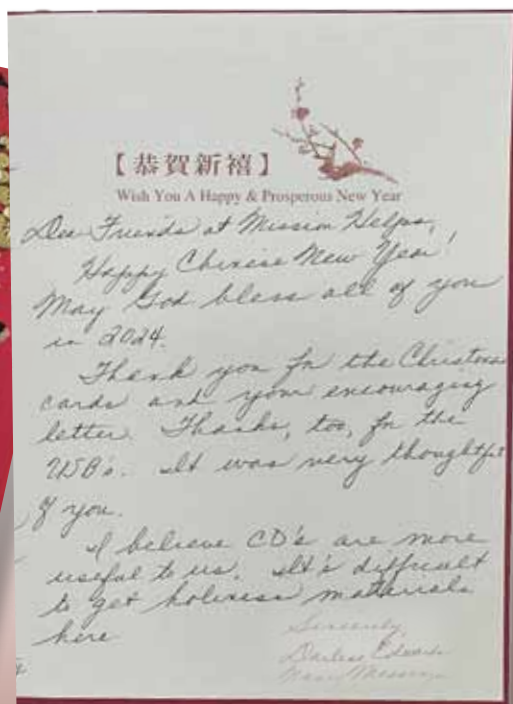 【恭賀新禧】
Wish You A Happy & Prosperous New Year
Dear Friends at Mission Helps,
Happy Chinese New Year!
May God bless all of you
in 2024.
Thank you for the Christmas
cards and your encouraging
letter. Thanks, too, for the
USB's. It was very thoughtful
of you.
I believe CD's are more
useful to us. It's difficult
to get holiness materials
here
Sincerely,
Darlene